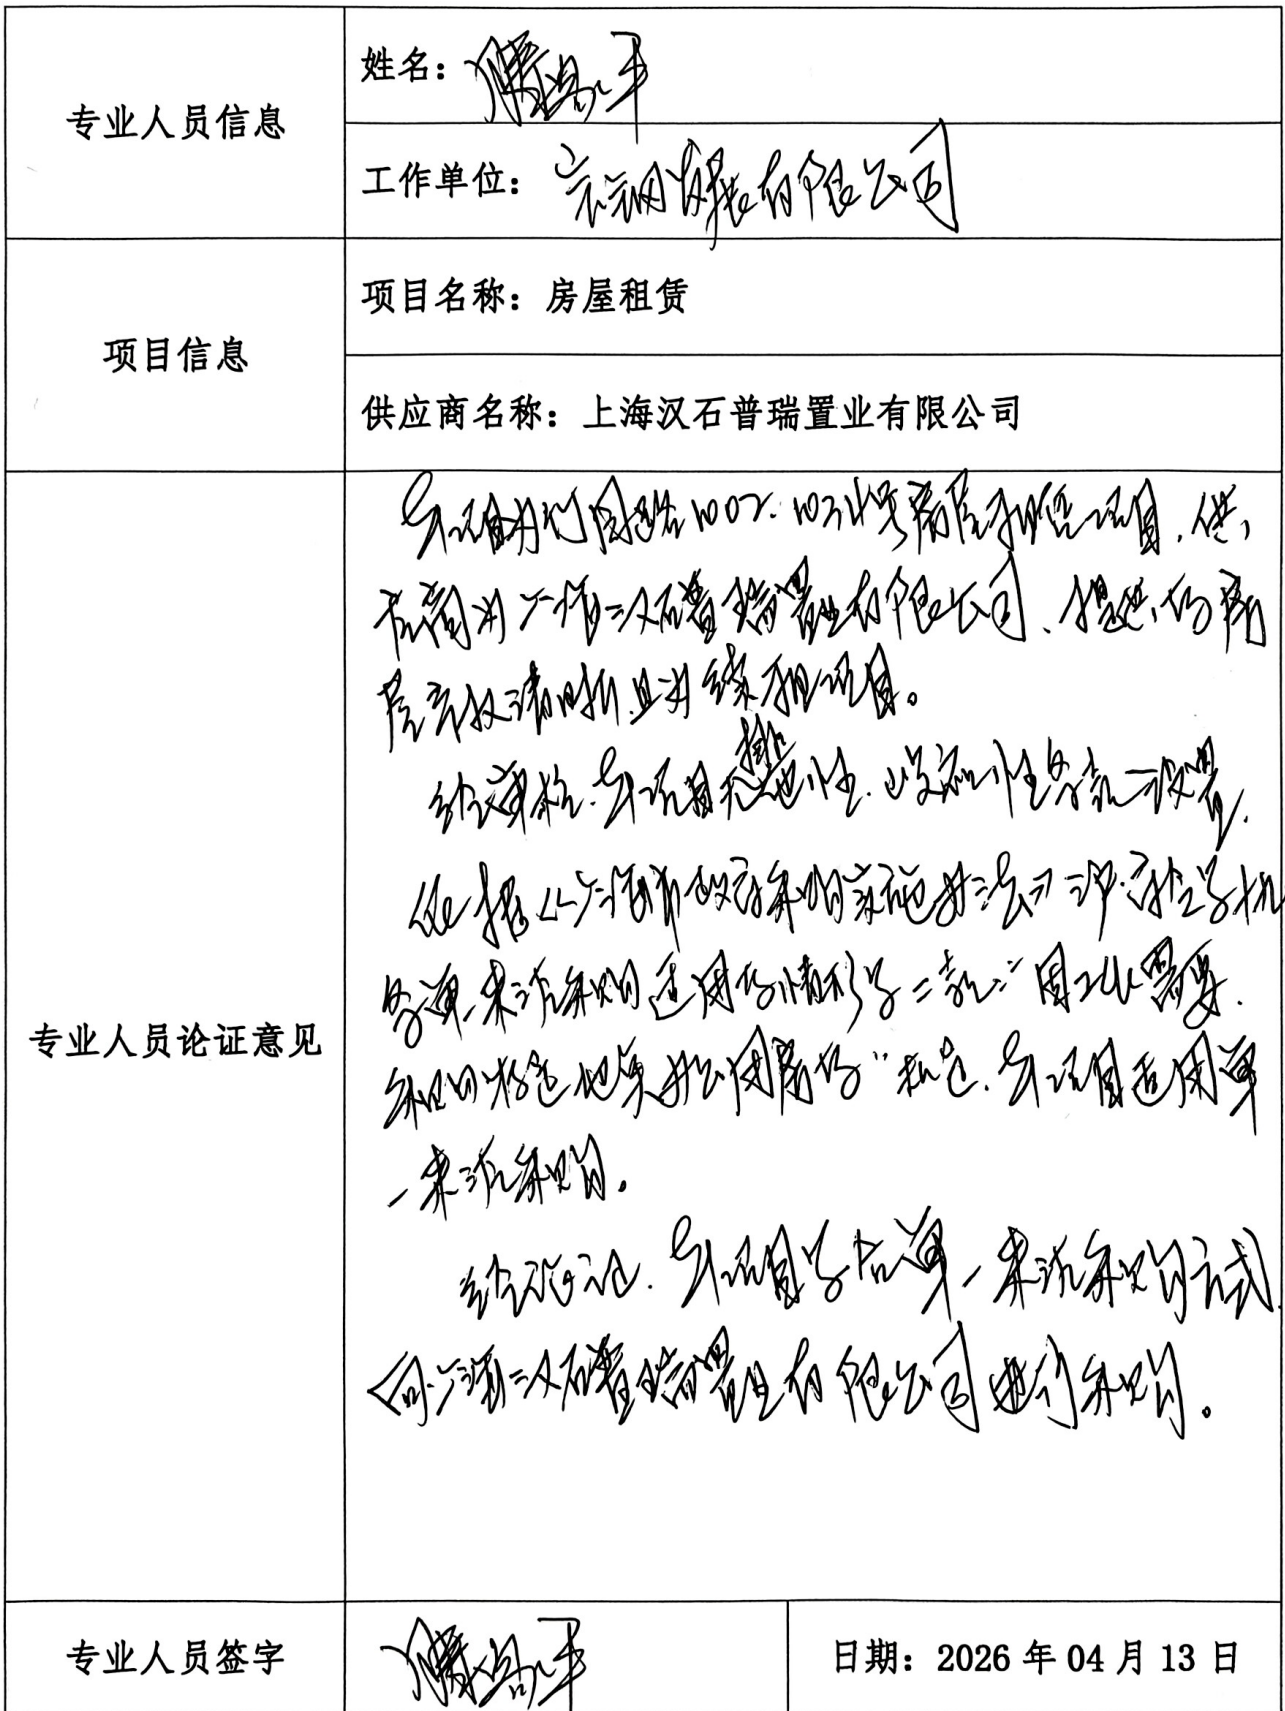 专业人员信息
姓名：
工作单位：宗钢发展有限公司
项目信息
项目名称：房屋租赁
供应商名称：上海汉石普瑞置业有限公司
专业人员论证意见
本项目为 1002、 房屋租赁项目，供
应商为上海汉石普瑞置业有限公司、提供的房
屋产权清晰且为续租项目。
经审核，本项目无排他性、歧视性条款设置，
依据《上海市政府采购实施办法》
条单一来源采购适用的情形第二款："因工作需要，
采购特定地点办公用房的"规定，本项目适用单
一来源采购。
经论证，本项目符合单一来源采购方式，
向上海汉石普瑞置业有限公司进行采购。
专业人员签字
日期：2026年04月13日